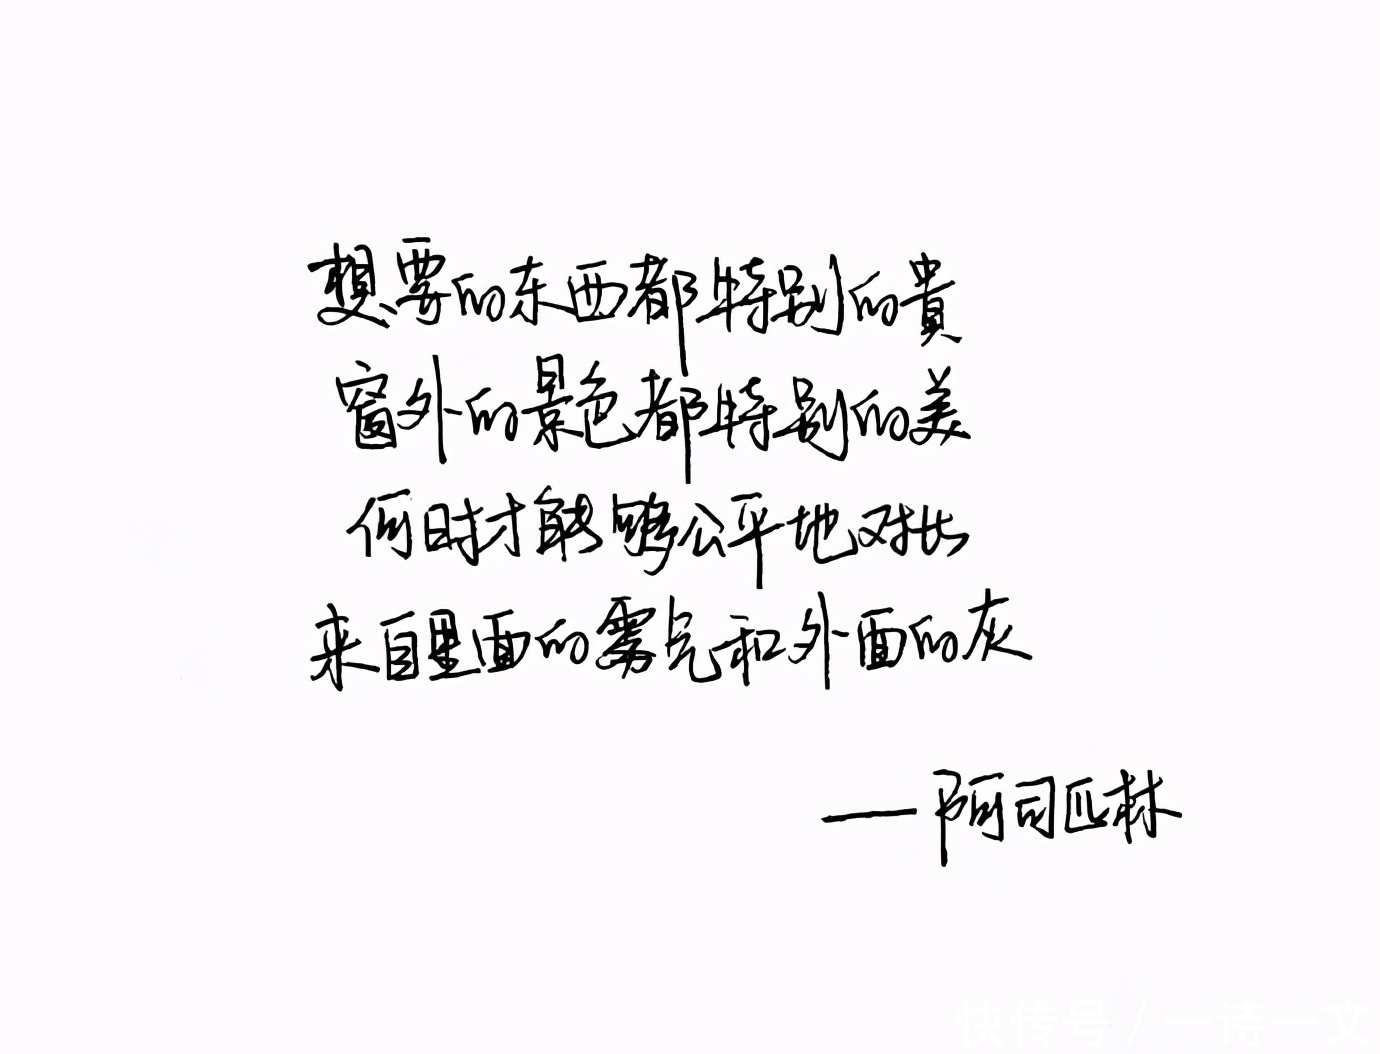 想要的东西都特别的貴
窗外的景色都特别的美
何时才能够公平地对比
来自里面的雾气和外面的灰
——阿司匹林
快传号/一诗一文